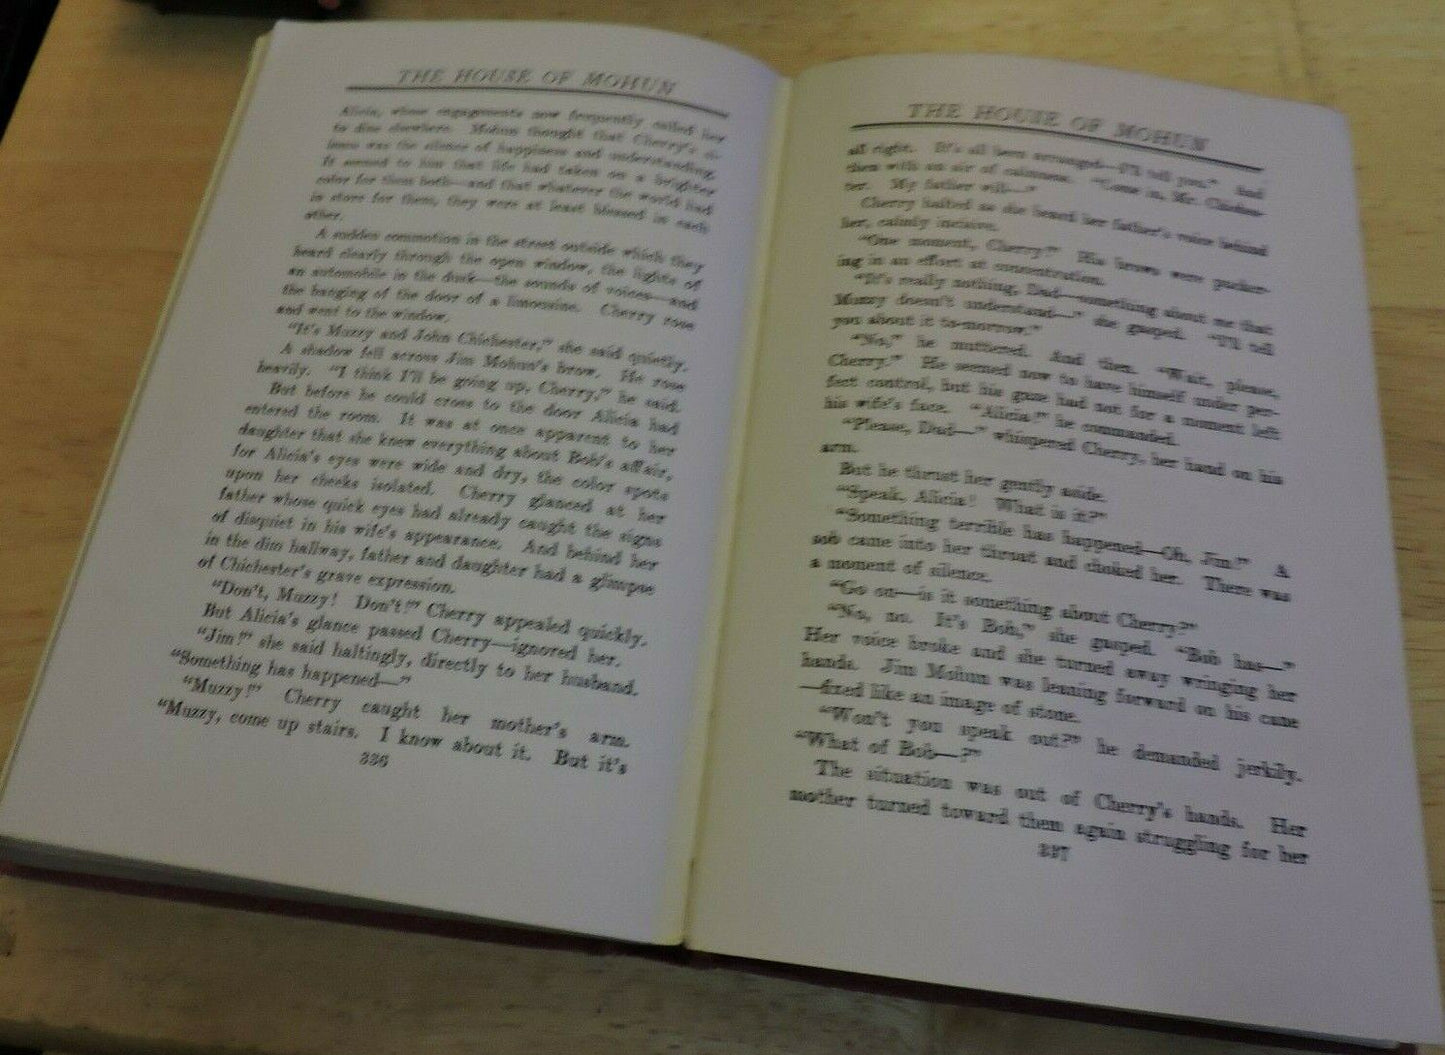 THE HOUSE OF MOHUN
Alicia, whose engagements now frequently called her
to dine elsewhere. Mohun thought that Cherry's si-
lence was the silence of happiness and understanding.
It seemed to him that life had taken on a brighter
color for them both—and that whatever the world had
in store for them, they were at least blessed in each
other.
A sudden commotion in the street outside which they
heard clearly through the open window, the lights of
an automobile in the dusk—the sounds of voices—and
the banging of the door of a limousine. Cherry rose
and went to the window.
"It's Muzzy and John Chichester," she said quietly.
A shadow fell across Jim Mohun's brow. He rose
heavily. "I think I'll be going up, Cherry," he said.
But before he could cross to the door Alicia had
entered the room. It was at once apparent to her
daughter that she knew everything about Bob's affair,
for Alicia's eyes were wide and dry, the color spots
upon her cheeks isolated. Cherry glanced at her
father whose quick eyes had already caught the signs
of disquiet in his wife's appearance. And behind her
in the dim hallway, father and daughter had a glimpse
of Chichester's grave expression.
"Don't, Muzzy! Don't!" Cherry appealed quickly.
But Alicia's glance passed Cherry—ignored her.
"Jim!" she said haltingly, directly to her husband.
"Something has happened—"
"Muzzy!" Cherry caught her mother's arm.
"Muzzy, come up stairs. I know about it. But it's
336
THE HOUSE OF MOHUN
all right. It's all been arranged—I'll tell you." And
then with an air of calmness. "Come in, Mr. Chiches-
ter. My father will—"
Cherry halted as she heard her father's voice behind
her, calmly incisive.
"One moment, Cherry!" His brows were pucker-
ing in an effort at concentration.
"It's really nothing, Dad—something about me that
Muzzy doesn't understand—" she gasped. "I'll tell
you about it to-morrow."
"No," he muttered. And then. "Wait, please,
Cherry." He seemed now to have himself under per-
fect control, but his gaze had not for a moment left
his wife's face. "Alicia!" he commanded.
"Please, Dad—" whispered Cherry, her hand on his
arm.
But he thrust her gently aside.
"Speak, Alicia! What is it?"
"Something terrible has happened—Oh, Jim!" A
sob came into her throat and choked her. There was
a moment of silence.
"Go on—is it something about Cherry?"
"No, no. It's Bob," she gasped. "Bob has—"
Her voice broke and she turned away wringing her
hands. Jim Mohun was leaning forward on his cane
—fixed like an image of stone.
"Won't you speak out?" he demanded jerkily.
"What of Bob—?"
The situation was out of Cherry's hands. Her
mother turned toward them again struggling for her
337